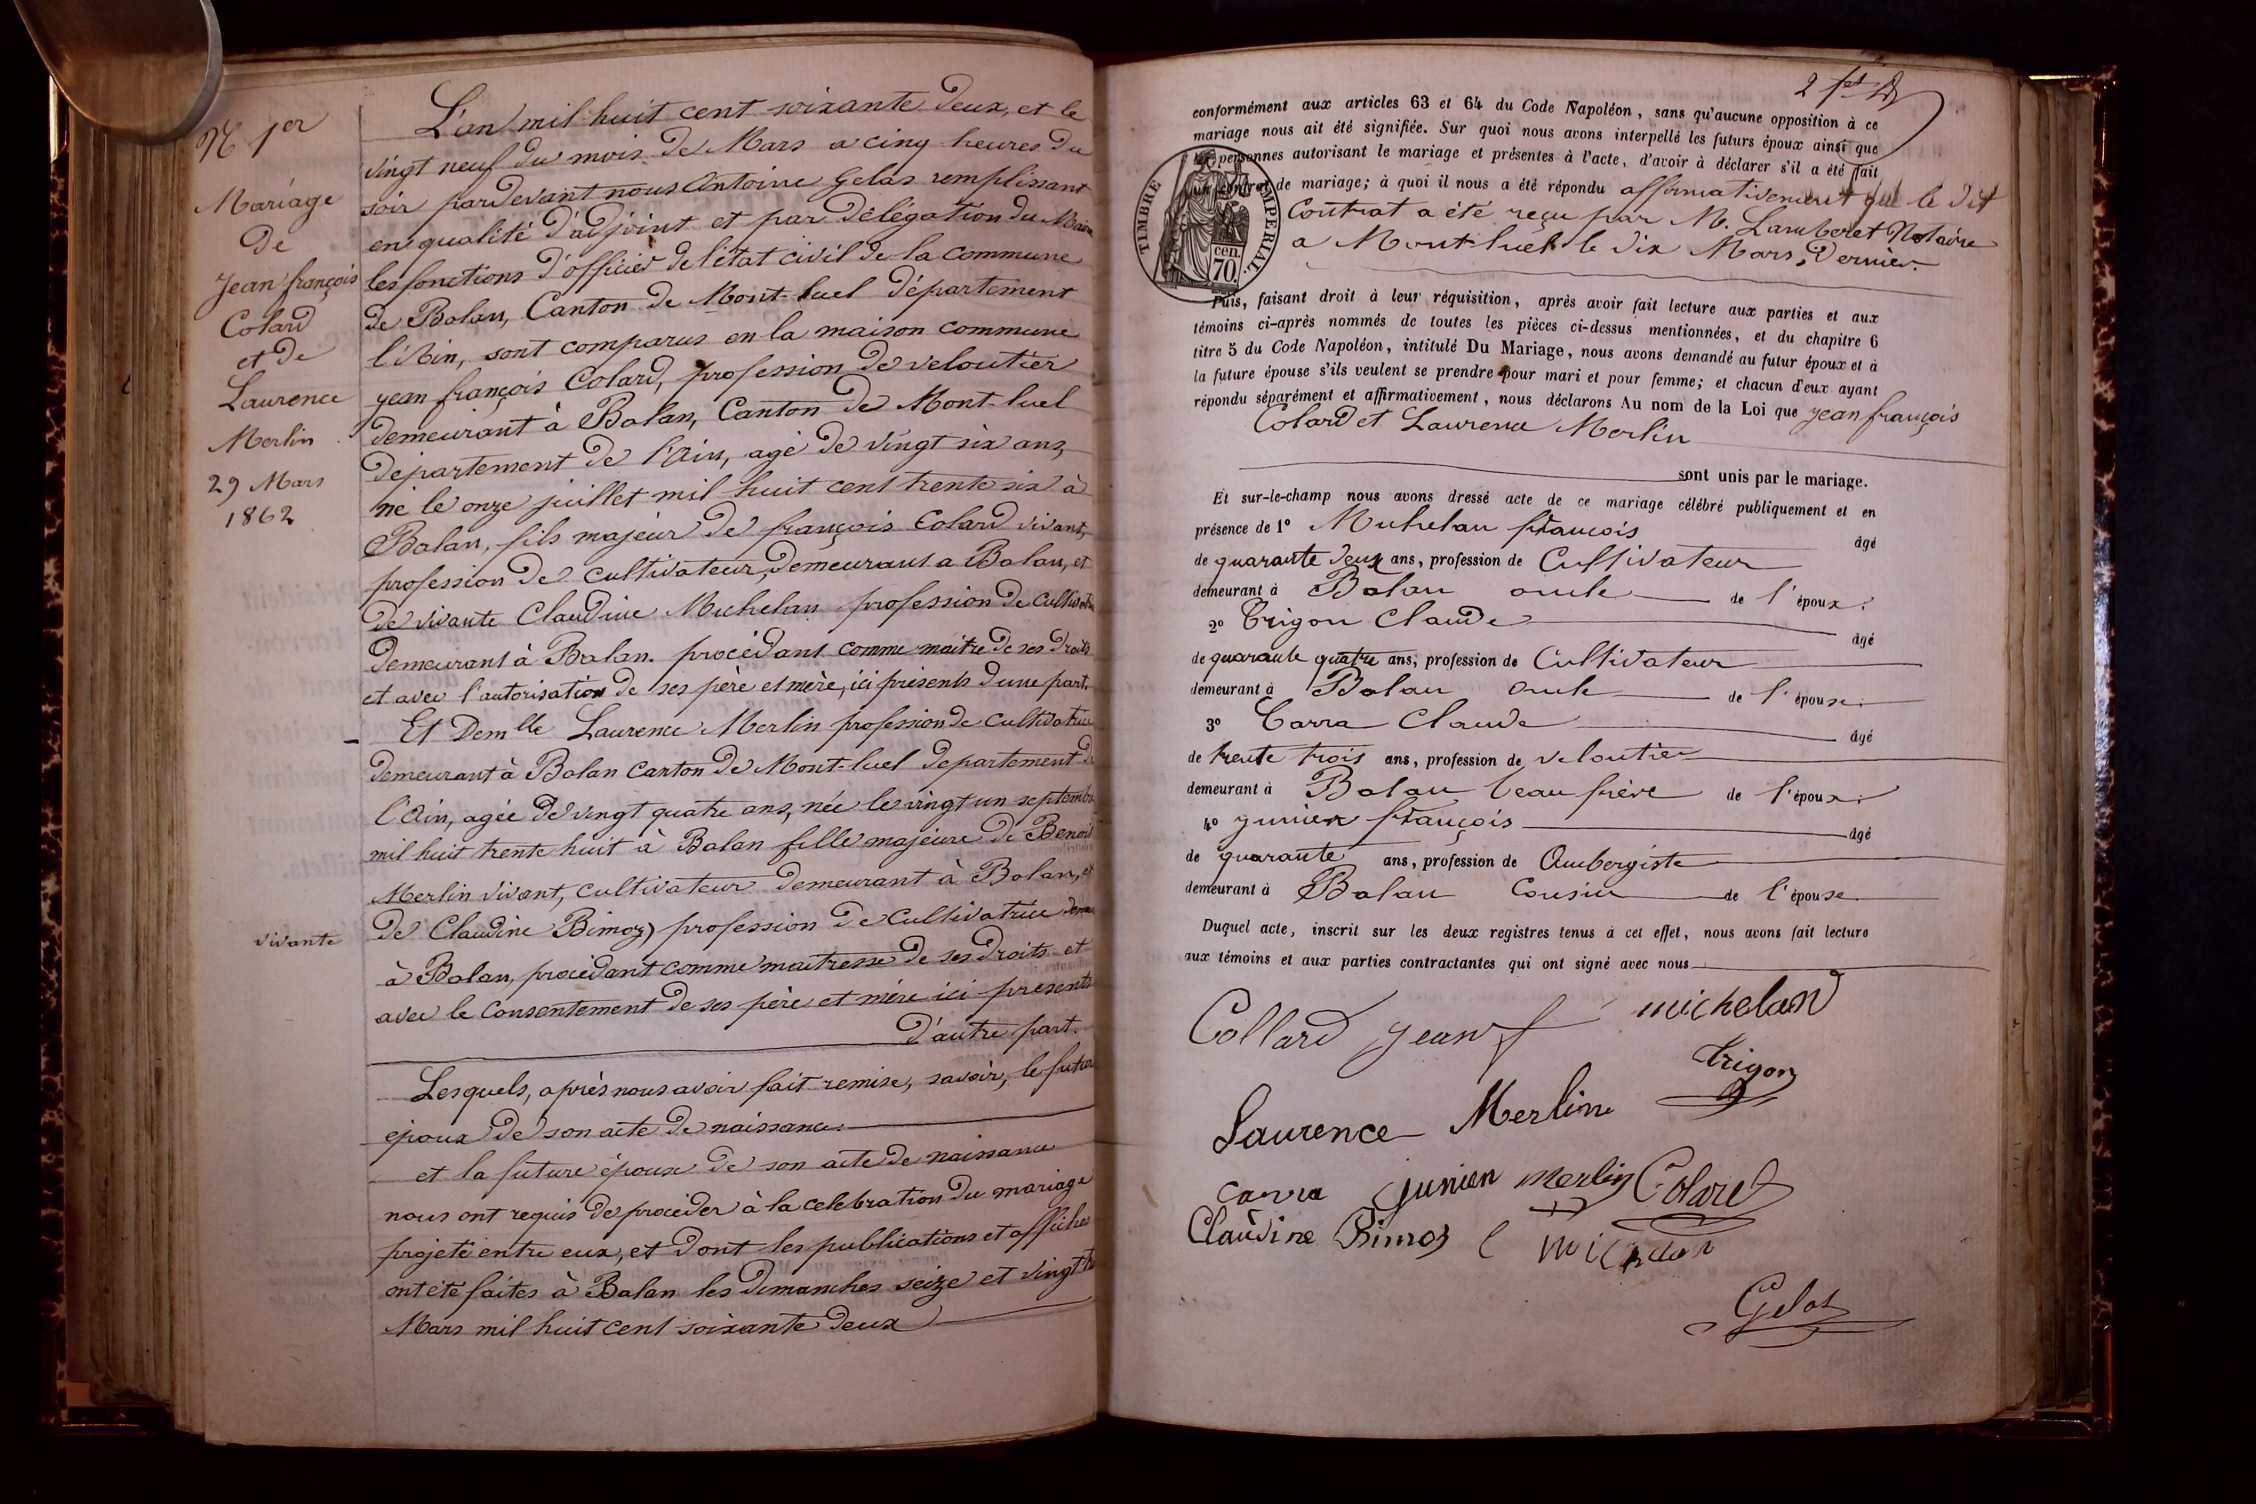 N° 1er
Mariage
de
Jean françois
Colard
et de
Laurence
Merlin
29 Mars
1862
vivante
L'an mil huit cent soixante deux, et le
vingt neuf du mois de Mars a cinq heures du
soir pardevant nous Antoine Gelas remplissant
en qualité d'adjoint et par délégation du Maire
les fonctions d'officier de l'état civil de la commune
de Balan, Canton de Mont-luel département
l'Ain, sont comparus en la maison commune
jean françois Colard, profession de veloutier
demeurant à Balan, Canton de Mont-luel
département de l'Ain, agé de vingt six ans,
né le onze juillet mil huit cent trente six à
Balan, fils majeur de françois Colard vivant,
profession de cultivateur, demeurant a Balan, et
de vivante Claudine Michelan profession de cultivatrice
demeurant à Balan. procédant comme maitre de ses droits
et avec l'autorisation de ses père et mère, ici présents d'une part.
Et Demlle Laurence Merlin profession de cultivatrice
demeurant à Balan canton de Mont-luel departement de
l'Ain, agée de vingt quatre ans, née le vingt un septembre
mil huit trente huit à Balan fille majeure de Benoit
Merlin vivant, cultivateur demeurant à Balan, et
de Claudine Bimoz) profession de cultivatrice dem
à Balan, procédant comme maitresse de ses droits et
avec le consentement de ses père et mère ici présents
d'autre part.
Lesquels, après nous avoir fait remise, savoir, le futur
époux de son acte de naissance.
et la future épouse de son acte de naissance
nous ont requis de procéder à la celebration du mariage
projeté entre eux, et dont les publications et affiches
ont été faites à Balan les dimanches seize et vingt
Mars mil huit cent soixante deux
conformément aux articles 63 et 64 du Code Napoléon, sans qu'aucune opposition à ce
mariage nous ait été signifiée. Sur quoi nous avons interpellé les futurs époux ainsi que
les personnes autorisant le mariage et présentes à l'acte, d'avoir à déclarer s'il a été fait
un contrat de mariage; à quoi il nous a été répondu affirmativement que le dit
Contrat a été reçu par M. Lamberet Notaire
a Mont-luel le dix Mars, dernier.
TIMBRE IMPERIAL
70 cen.
Puis, faisant droit à leur réquisition, après avoir fait lecture aux parties et aux
témoins ci-après nommés de toutes les pièces ci-dessus mentionnées, et du chapitre 6
titre 5 du Code Napoléon, intitulé Du Mariage, nous avons demandé au futur époux et à
la future épouse s'ils veulent se prendre pour mari et pour femme; et chacun d'eux ayant
répondu séparément et affirmativement, nous déclarons Au nom de la Loi que jean françois
Colard et Laurence Merlin
sont unis par le mariage.
Et sur-le-champ nous avons dressé acte de ce mariage célébré publiquement et en
présence de 1° Michelan françois âgé
de quarante deux ans, profession de Cultivateur
demeurant à Balan oncle de l'époux.
2° Trigon Claude âgé
de quarante quatre ans, profession de Cultivateur
demeurant à Balan oncle de l'épouse.
3° Carra Claude âgé
de trente trois ans, profession de veloutier
demeurant à Balan beau frère de l'époux.
4° junien françois âgé
de quarante ans, profession de Aubergiste
demeurant à Balan Cousin de l'épouse
Duquel acte, inscrit sur les deux registres tenus à cet effet, nous avons fait lecture
aux témoins et aux parties contractantes qui ont signé avec nous
Collard jean f michelan
trigon
Laurence Merlin
carra junien merlin Colard
Claudine Bimoz C
Gelas